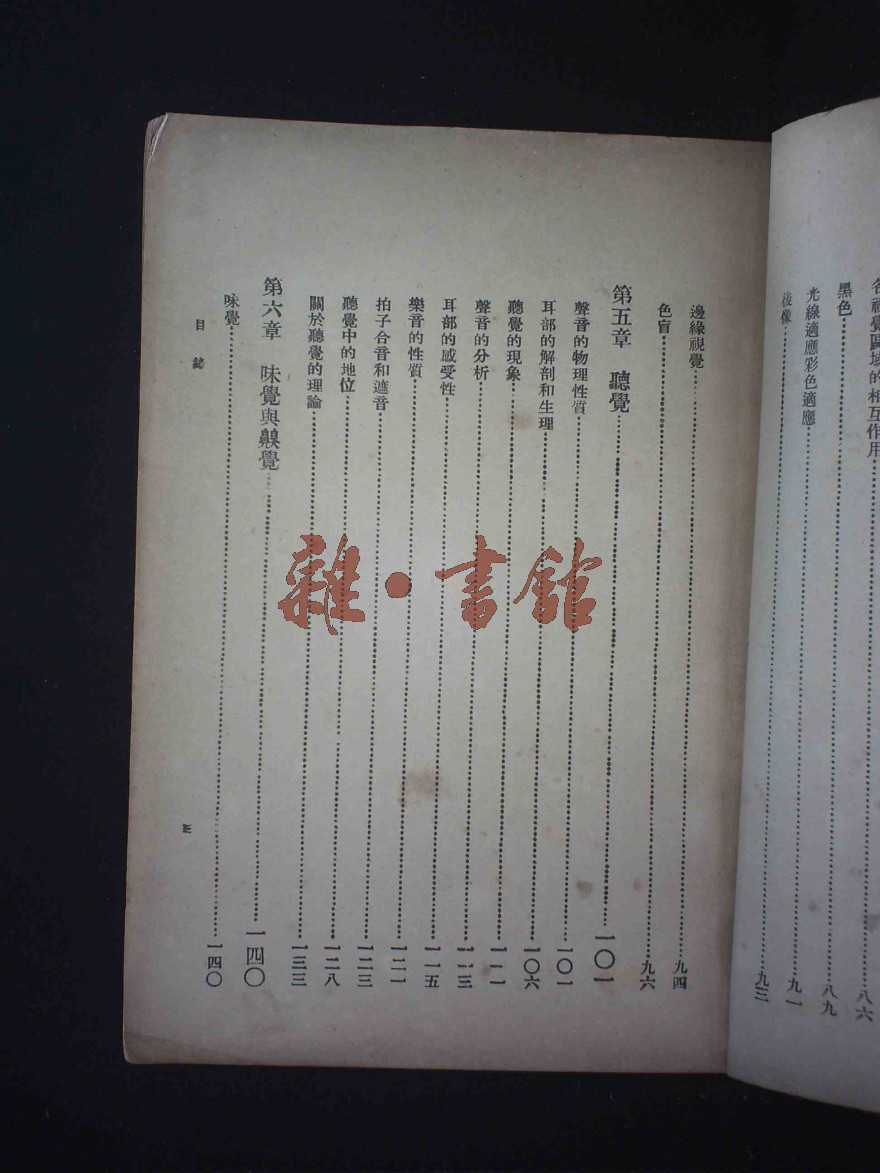 各視覺區域的相互作用……八六
黑色……八九
光線適應彩色適應……九一
後像……九三
邊緣視覺……九四
色盲……九六
第五章 聽覺……一〇一
聲音的物理性質……一〇一
耳部的解剖和生理……一〇六
聽覺的現象……一一一
聲音的分析……一一三
耳部的感受性……一一五
樂音的性質……一二一
拍子合音和遮音……一二三
聽覺中的地位……一二八
關於聽覺的理論……一三三
第六章 味覺與齅覺……一四〇
味覺……一四〇
目錄
雜·書館